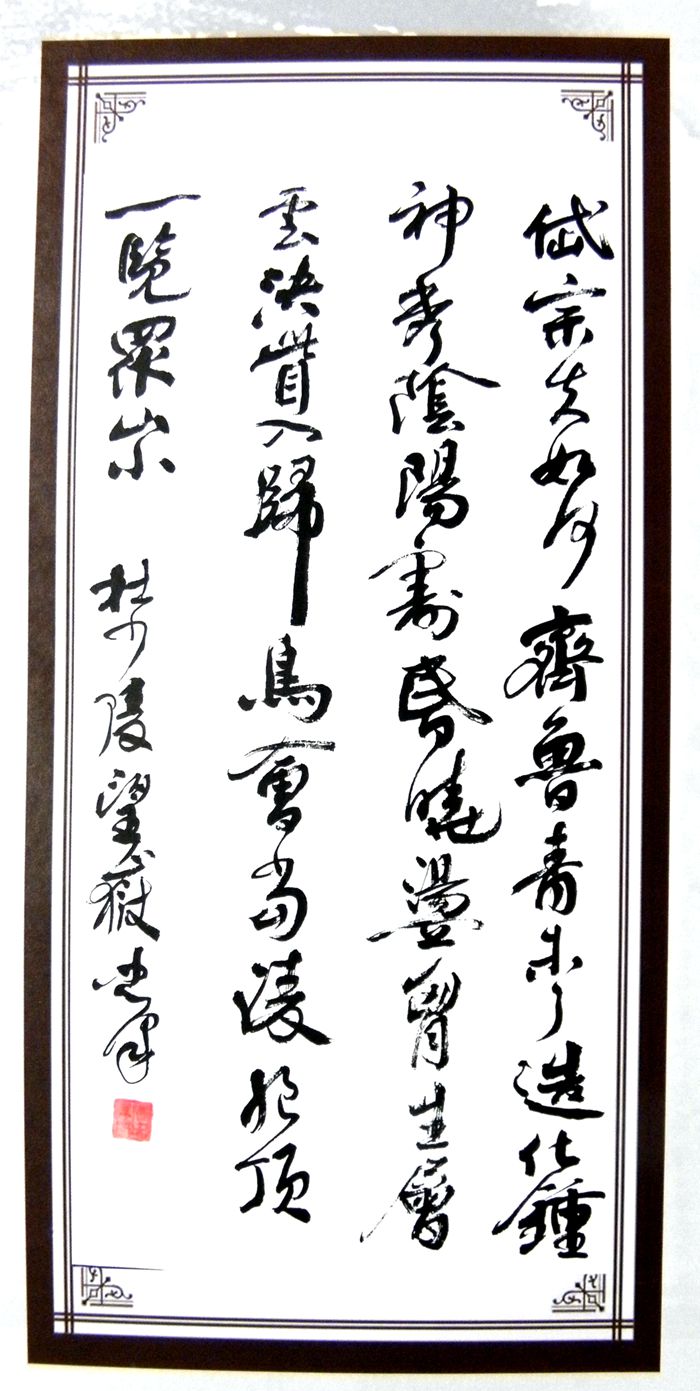 岱宗夫如何齊魯青未了造化鍾
神秀陰陽割昏曉盪胸生層
雲決眥入歸鳥會當凌絕頂
一覽眾山小 杜少陵望嶽